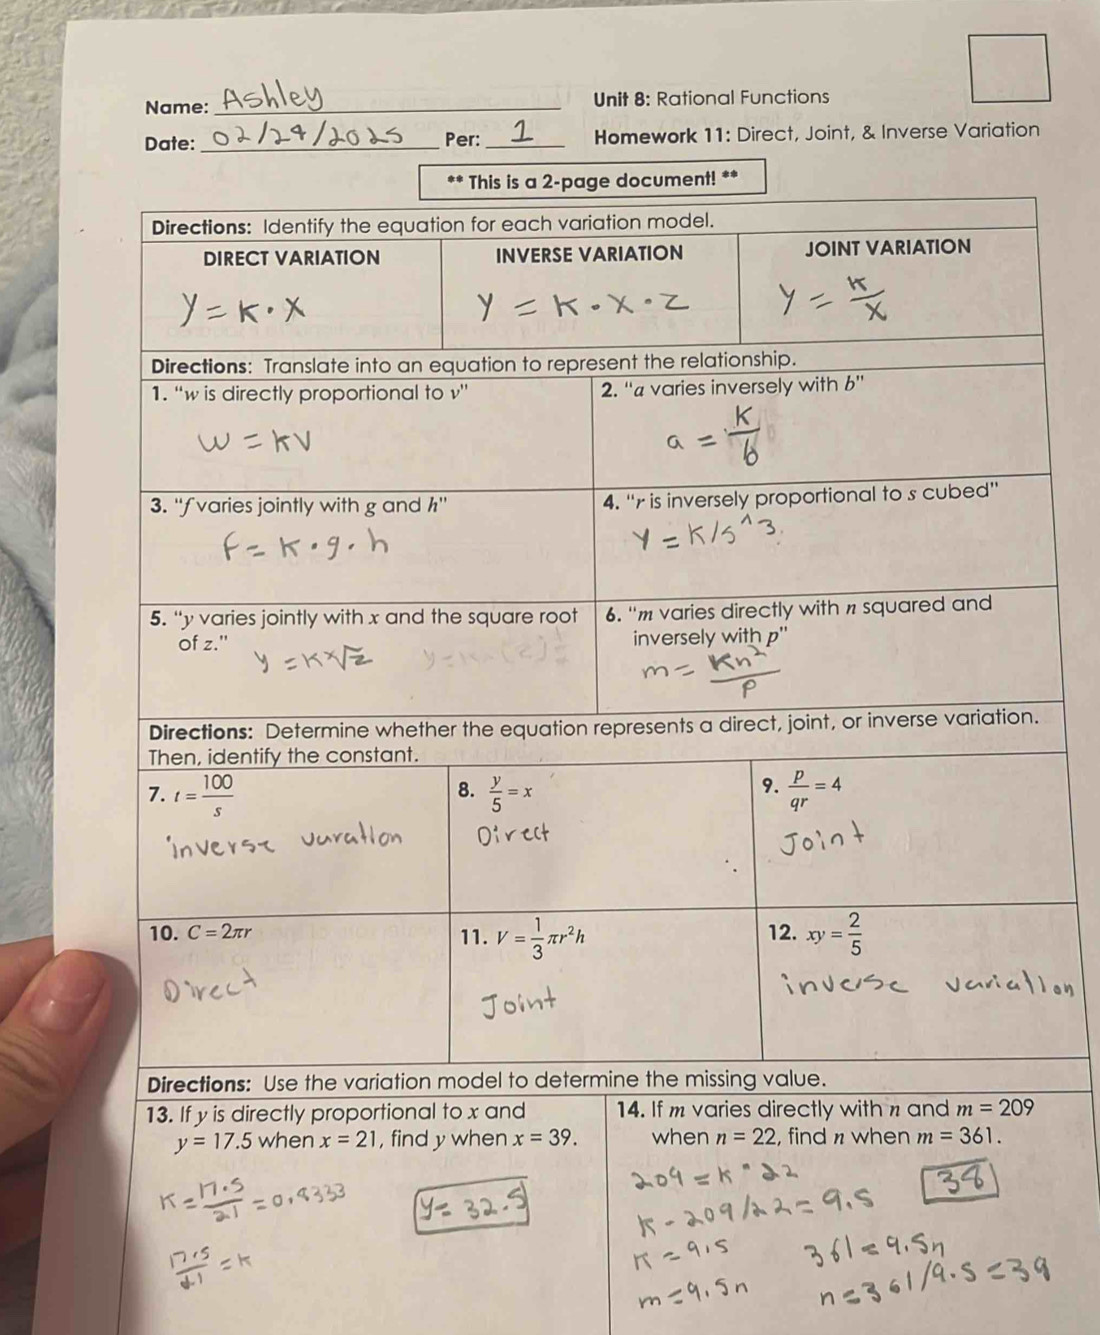 Name: Ashley
Unit 8: Rational Functions
Date: 02/24/2025 Per: 1
Homework 11: Direct, Joint, & Inverse Variation
** This is a 2-page document! **
Directions: Identify the equation for each variation model.
DIRECT VARIATION
INVERSE VARIATION
JOINT VARIATION
y = K · X
y = K · X · Z
y = K/X
Directions: Translate into an equation to represent the relationship.
1. "w is directly proportional to v"
w = KV
2. "a varies inversely with b"
a = K/b
3. "f varies jointly with g and h"
F = K · g · h
4. "r is inversely proportional to s cubed"
Y = K/S^3
5. "y varies jointly with x and the square root
of z."
y = Kx√z
6. "m varies directly with n squared and
inversely with p"
m = Kn²/P
Directions: Determine whether the equation represents a direct, joint, or inverse variation.
Then, identify the constant.
7. t = 100/s
inverse varation
8. y/5 = x
Direct
9. p/qr = 4
Joint
10. C = 2πr
Direct
11. V = 1/3 πr²h
Joint
12. xy = 2/5
inverse variation
Directions: Use the variation model to determine the missing value.
13. If y is directly proportional to x and
y = 17.5 when x = 21, find y when x = 39.
K = 17.5/21 = 0.8333
y = 32.5
17.5/21 = K
14. If m varies directly with n and m = 209
when n = 22, find n when m = 361.
209 = K · 22
38
K - 209/22 = 9.5
K = 9.5
361 = 9.5n
m = 9.5n
n = 361/9.5 = 38